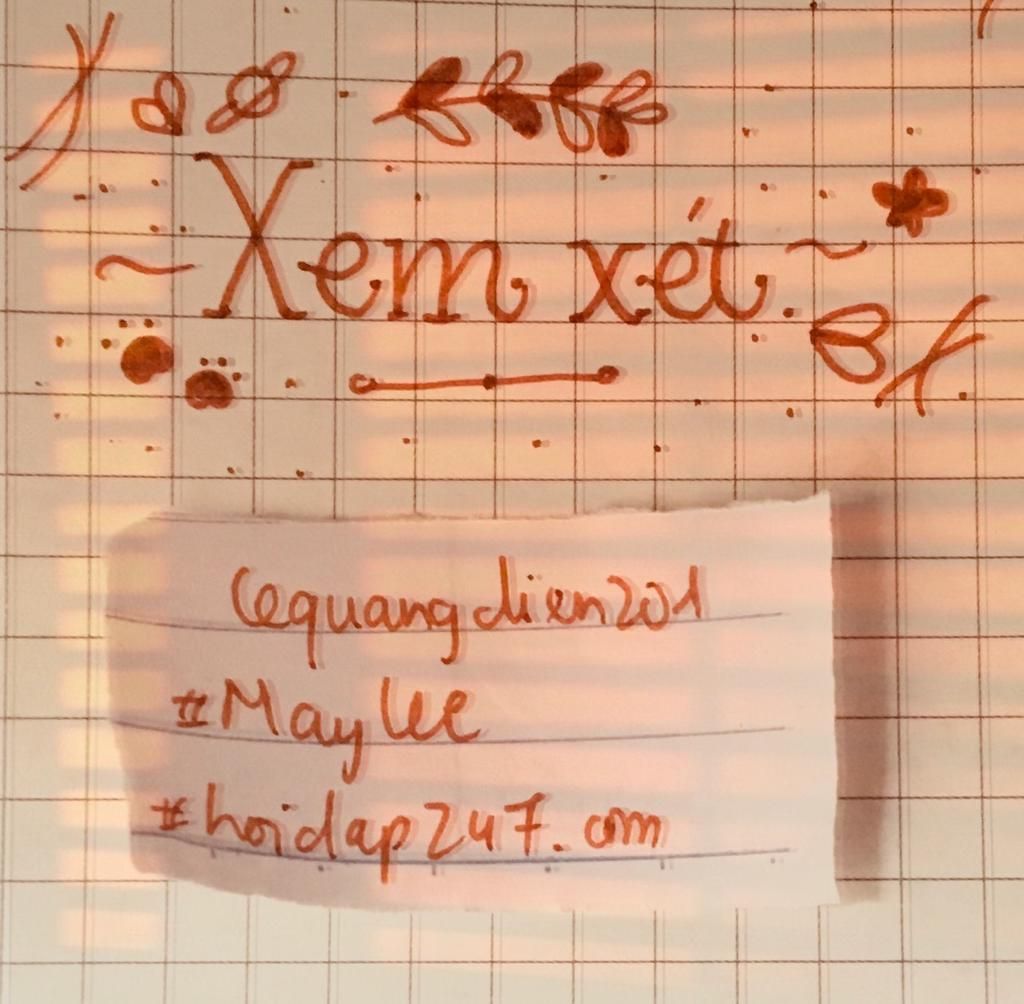 ~ Xem xét. ~
lequangdien201
#May lee
#hoidap247.com